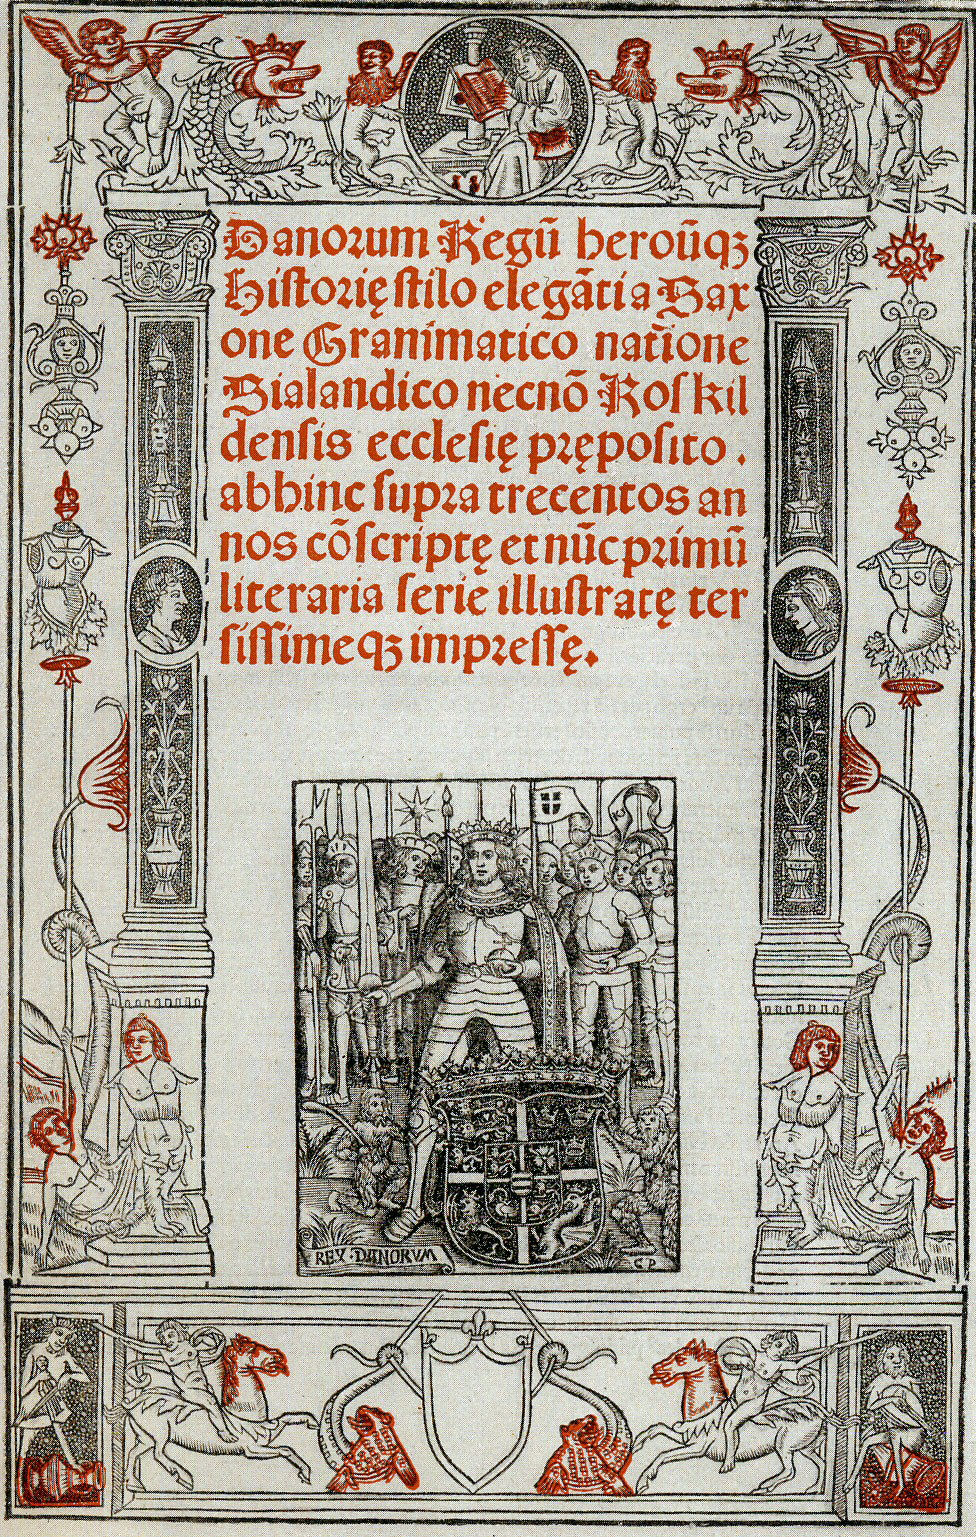 Danorum Regū heroūqꝫ
Historię stilo elegāti a Sax
one Grammatico natione
Sialandico necnō Roskil
densis ecclesię pręposito.
abhinc supra trecentos an
nos cōscriptę et nūc primū
literaria serie illustratę ter
sissimeqꝫ impressę.
REX DANORVM
C P